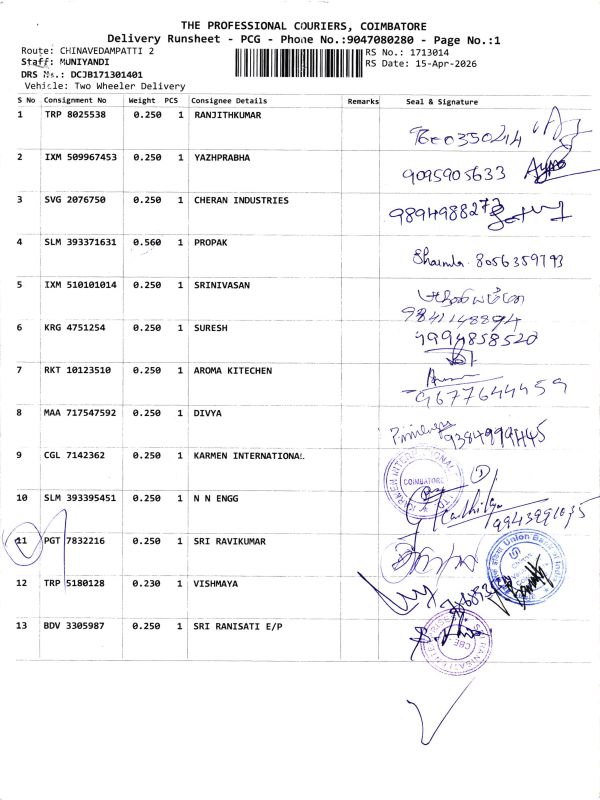 THE PROFESSIONAL COURIERS, COIMBATORE
Delivery Runsheet - PCG - Phone No.:9047080280 - Page No.:1
Route: CHINAVEDAMPATTI 2
RS No.: 1713014
Staff: MUNIYANDI
RS Date: 15-Apr-2026
DRS No.: DCJB171301401
Vehicle: Two Wheeler Delivery
S No Consignment No Weight PCS Consignee Details Remarks Seal & Signature
1 TRP 8025538 0.250 1 RANJITHKUMAR
2 IXM 509967453 0.250 1 YAZHPRABHA 9095905633
3 SVG 2076750 0.250 1 CHERAN INDUSTRIES 9894988273
4 SLM 393371631 0.560 1 PROPAK 8056359793
5 IXM 510101014 0.250 1 SRINIVASAN
9841148894
6 KRG 4751254 0.250 1 SURESH 9994858520
7 RKT 10123510 0.250 1 AROMA KITECHEN
9677644459
8 MAA 717547592 0.250 1 DIVYA
9 CGL 7142362 0.250 1 KARMEN INTERNATIONAL
KARMEN INTERNATIONAL COIMBATORE
10 SLM 393395451 0.250 1 N N ENGG
9943991035
11 PGT 7832216 0.250 1 SRI RAVIKUMAR
Union Bank of India
12 TRP 5180128 0.230 1 VISHMAYA
13 BDV 3305987 0.250 1 SRI RANISATI E/P
CBE